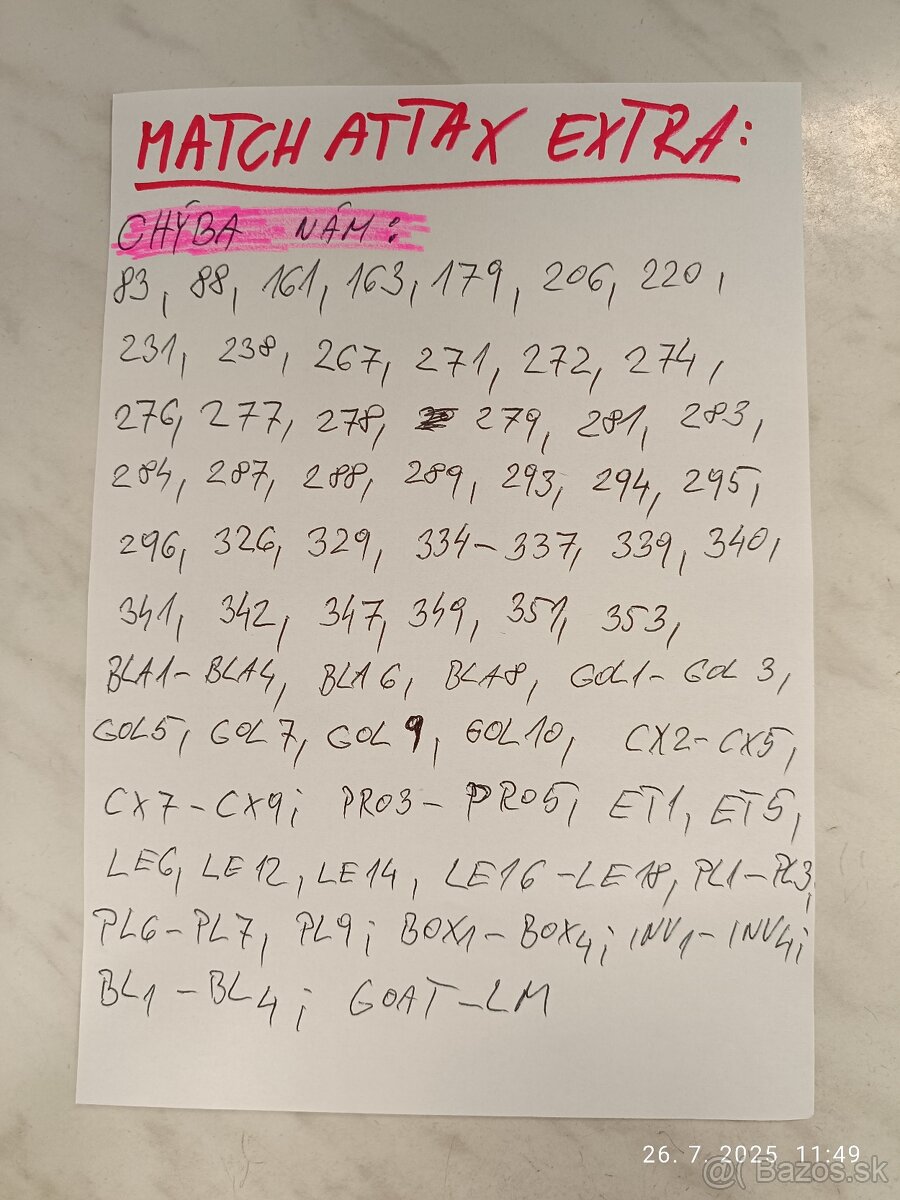 MATCH ATTAX EXTRA:
CHÝBA NÁM:
83, 88, 161, 163, 179, 206, 220,
231, 238, 267, 271, 272, 274,
276, 277, 278, 279, 281, 283,
284, 287, 288, 289, 293, 294, 295,
296, 326, 329, 334-337, 339, 340,
341, 342, 347, 349, 351, 353,
BLA1-BLA4, BLA6, BLA8, GOL1-GOL3,
GOL5, GOL7, GOL9, GOL10, CX2-CX5,
CX7-CX9; PRO3-PRO5, ET1, ET5,
LE6, LE12, LE14, LE16-LE18, PL1-PL3,
PL6-PL7, PL9; BOX1-BOX4; INV1-INV4;
BL1-BL4; GOAT-LM
26. 7. 2025 11:49
@( Bazos.sk